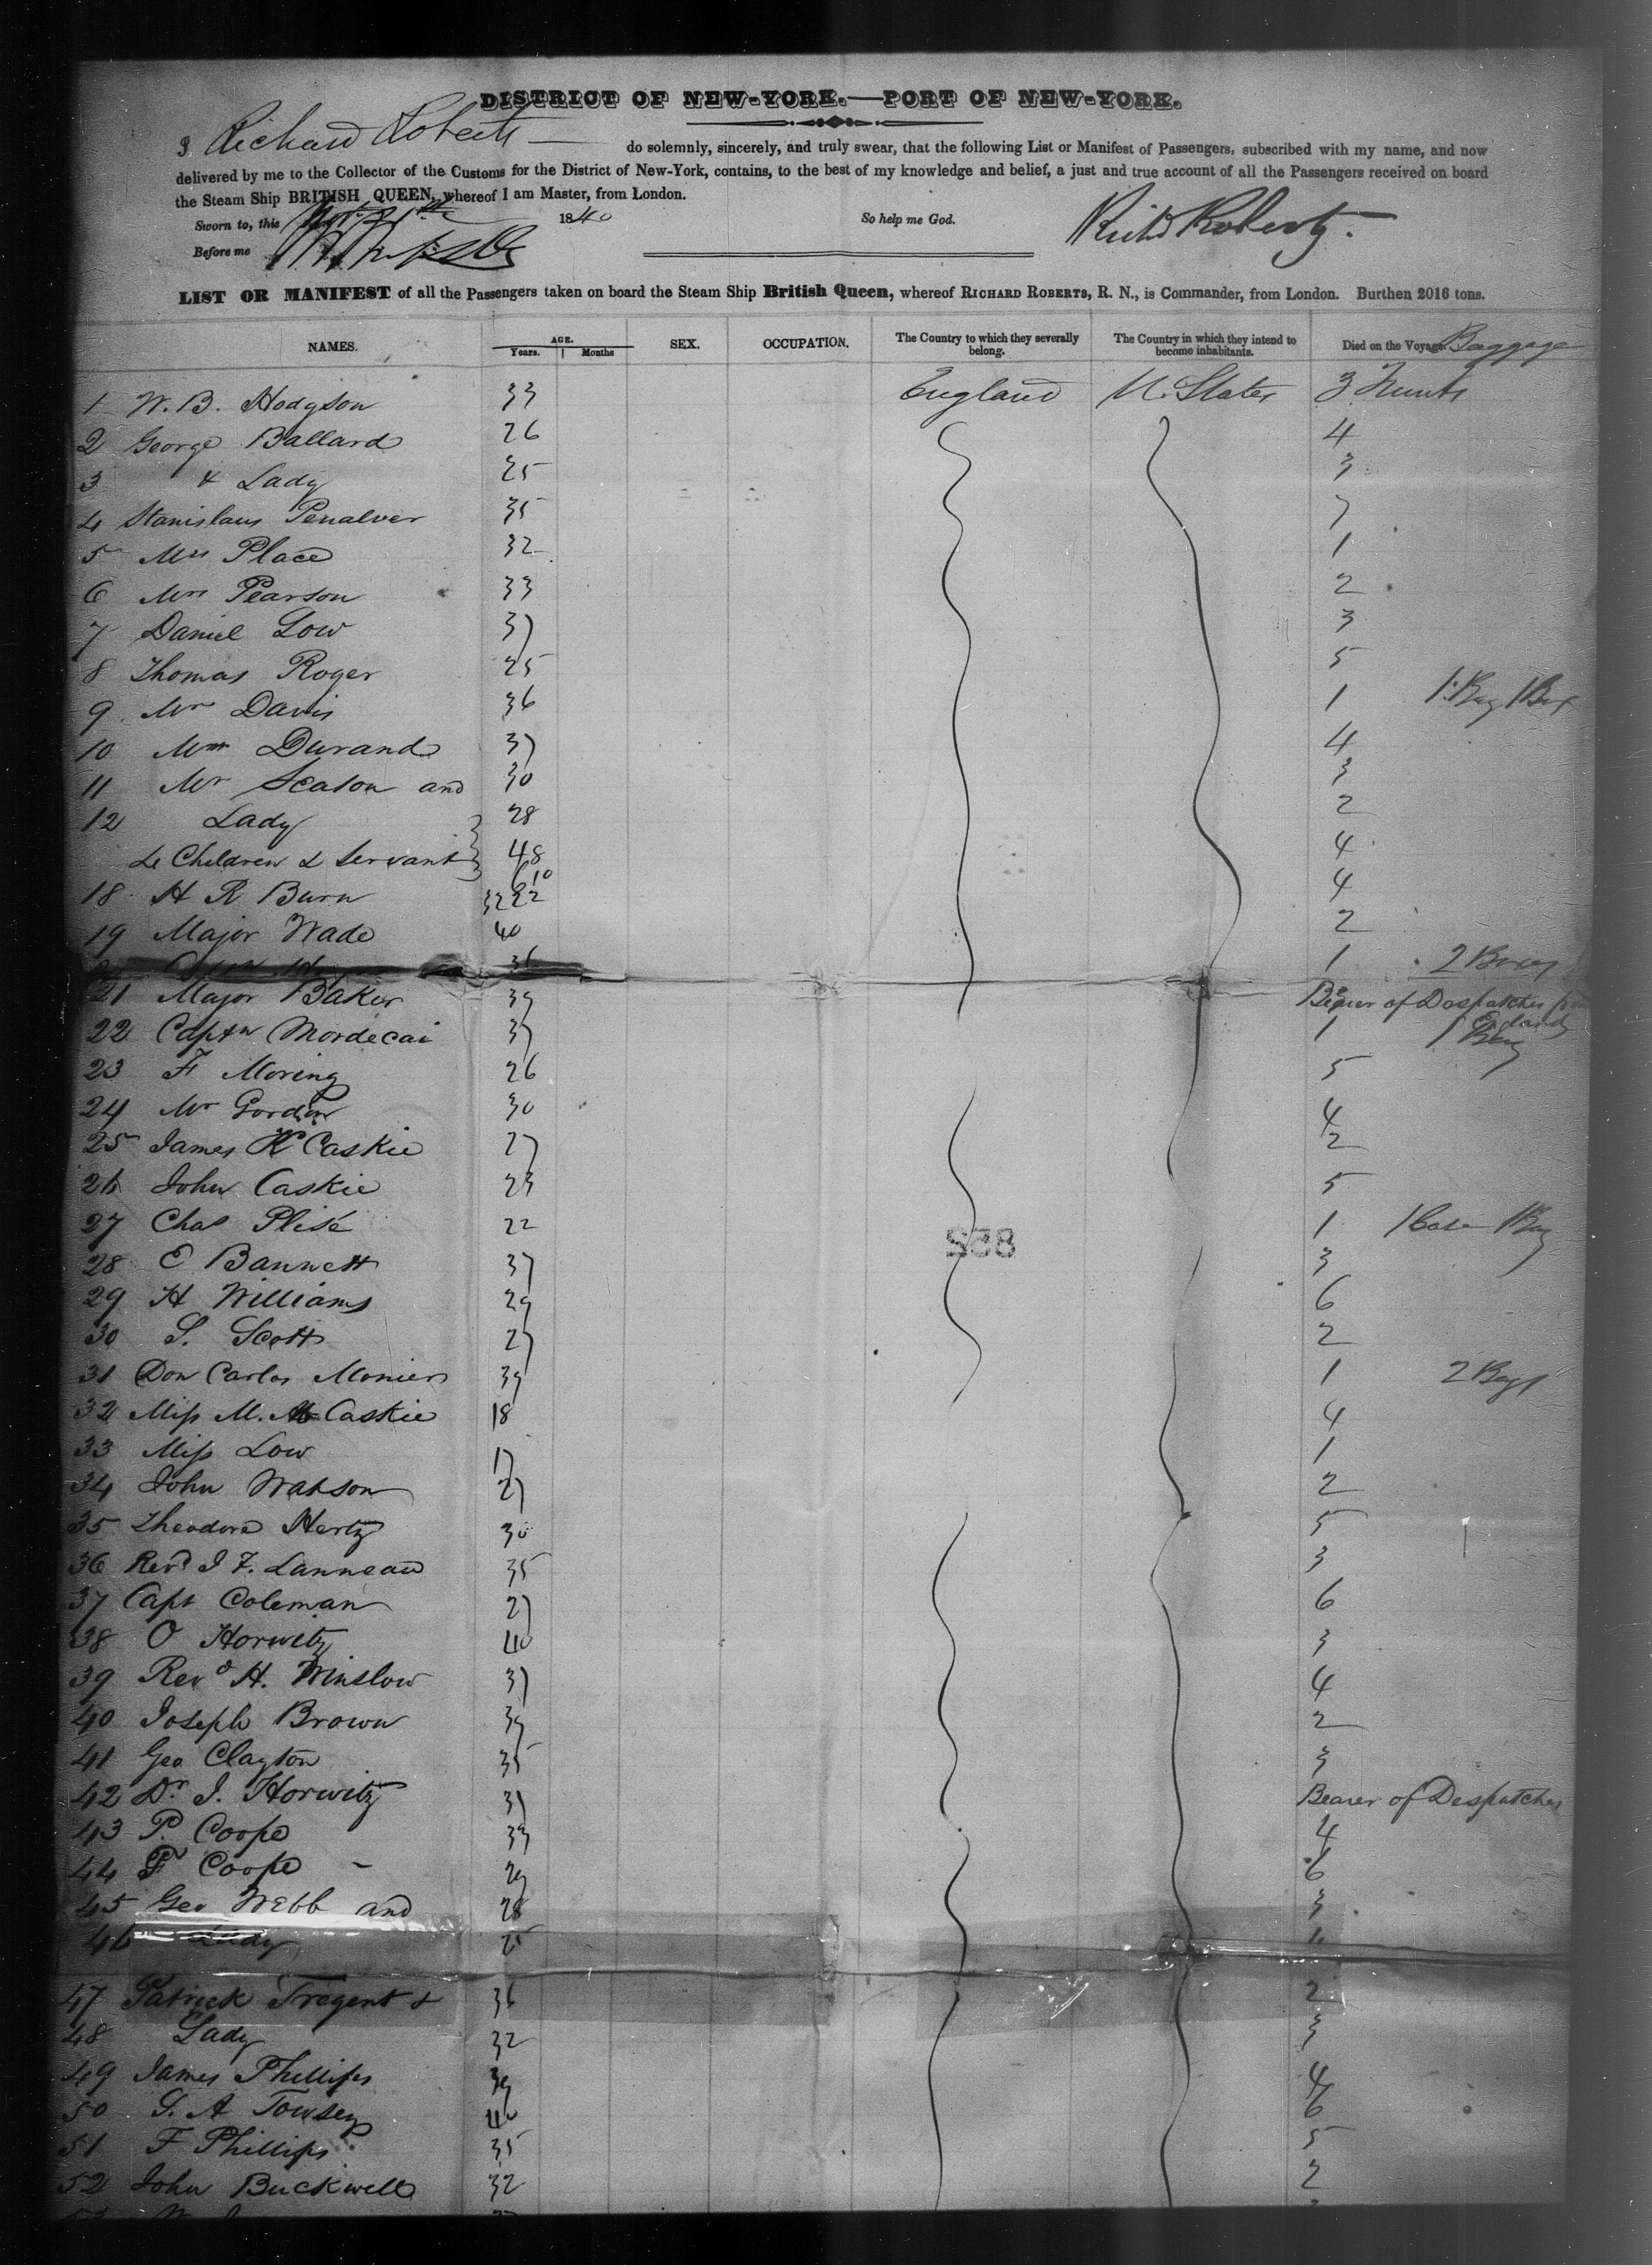 DISTRICT OF NEW-YORK.—PORT OF NEW-YORK.
I Richard Roberts do solemnly, sincerely, and truly swear, that the following List or Manifest of Passengers, subscribed with my name, and now
delivered by me to the Collector of the Customs for the District of New-York, contains, to the best of my knowledge and belief, a just and true account of all the Passengers received on board
the Steam Ship BRITISH QUEEN, whereof I am Master, from London.
Sworn to, this 1840 So help me God. Richd Roberts.
Before me
LIST OR MANIFEST of all the Passengers taken on board the Steam Ship British Queen, whereof RICHARD ROBERTS, R. N., is Commander, from London. Burthen 2016 tons.
NAMES. AGE. Years. Months SEX. OCCUPATION. The Country to which they severally belong. The Country in which they intend to become inhabitants. Died on the Voyage Baggage
1 W. B. Hodgson 33 England U. States 3 Trunks
2 George Ballard 26 4
3 & Lady 25 3
4 Stanislaus Penalver 35 7
5 Mrs Place 32 1
6 Mrs Pearson 33 2
7 Daniel Low 37 3
8 Thomas Roger 25 5
9 Mr Davis 36 1 1 Bag 1 Box
10 Durand 37 4
11 Mr Seaton and 30 3
12 Lady 28 2
4 Children & Servant 4
18 H R Burn 4
19 Major Wade 40 2
36 1 2 Boxes
21 Major Baker 39 Bearer of Despatches from England
22 Captn Mordecai 37 1 1 Bag
23 F Moring 26 5
24 Mr Gordon 30 4
25 James Caskie 27 2
26 John Caskie 23 5
27 Chas Plisé 22 1 1 Case 1 Bag
28 E Bannett 37 3
858
29 H Williams 29 6
30 S. Scott 27 2
31 Don Carlos Monier 39 1 2 Bags
32 Miss M. Caskie 18 4
33 Miss Low 17 1
34 John Watson 27 2
35 Theodore Hertz 30 5
36 Revd J F. Lanneau 35 3
37 Capt Coleman 27 6
38 O Horwitz 40 3
39 Revd H. Winslow 37 4
40 Joseph Brown 39 2
41 Geo Clayton 35 3
42 Dr J. Horwitz 37 Bearer of Despatches
43 P. Coope 39 4
44 F Coope 29 6
45 Geo Webb and 28 3
46 Lady 25
47 Patrick Tregent & 36 2
48 Lady 32 3
49 James Phillips 39 4
50 S. A Towsey 40 6
51 F Phillips 35 5
52 John Buckwell 32 2